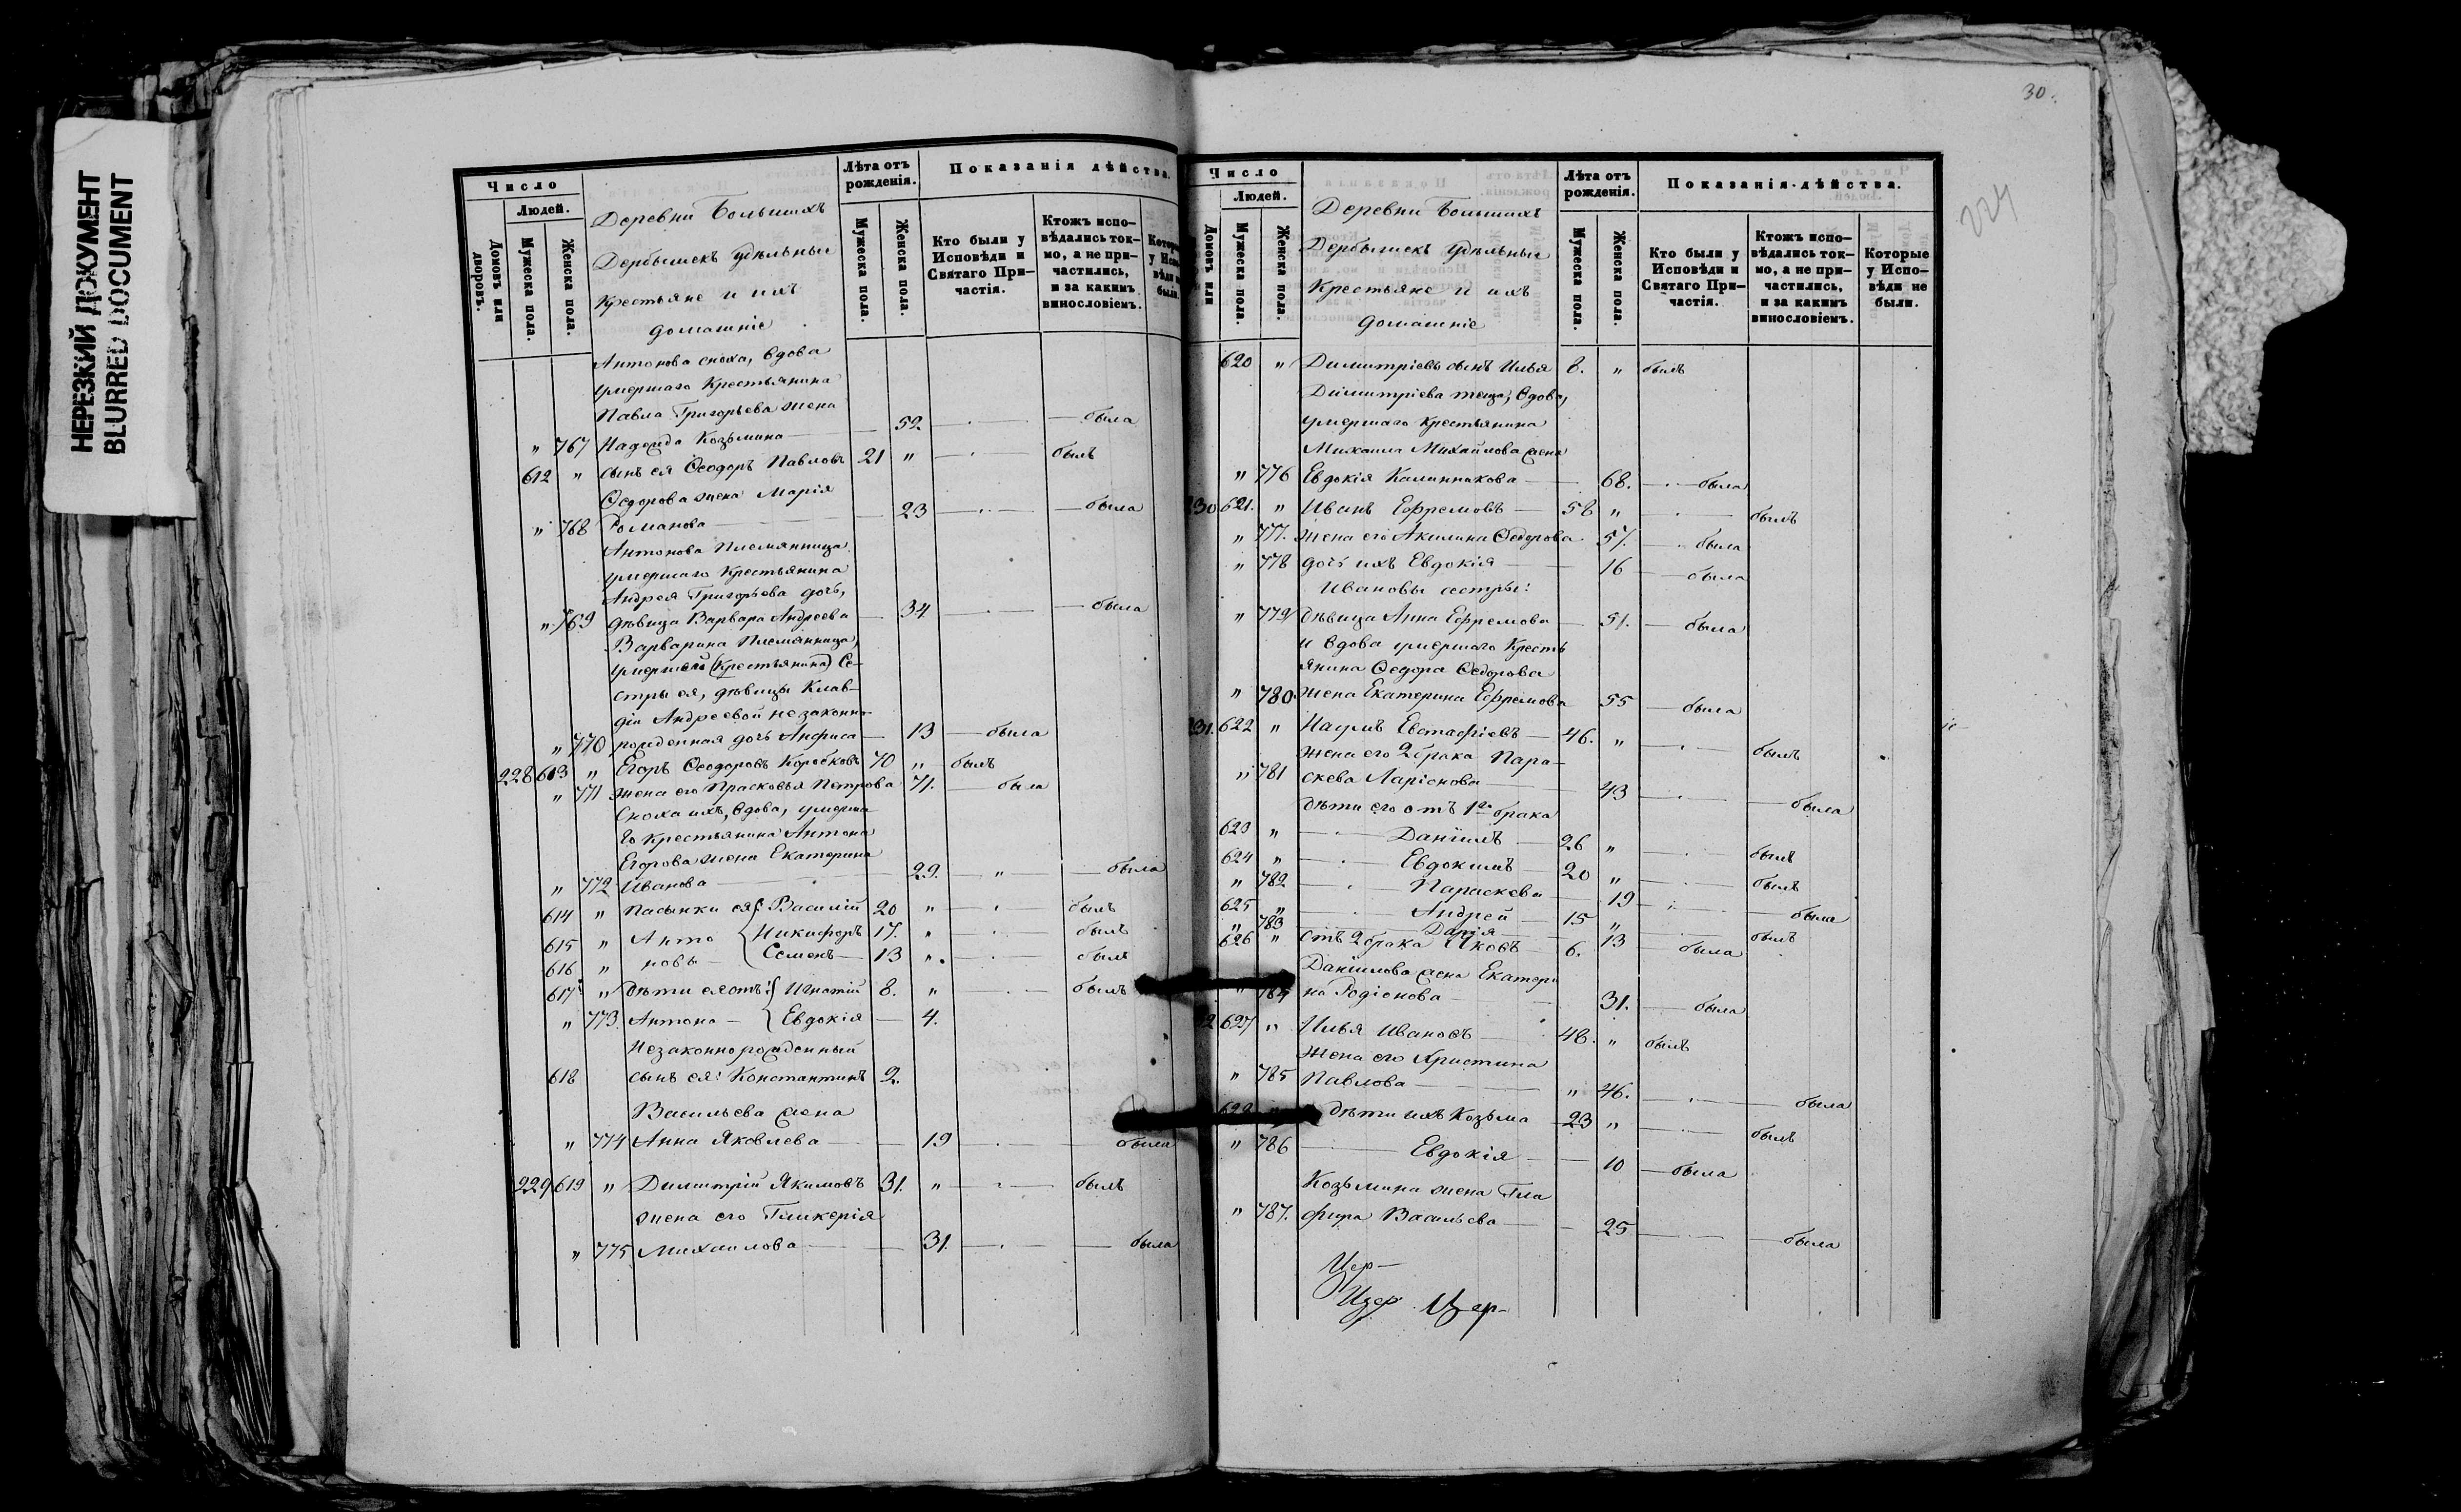 НЕРЕЗКИЙ ДОКУМЕНТ
BLURRED DOCUMENT
Число
Людей.
Домовъ или дворовъ.
Мужеска пола.
Женска пола.
Деревни Большихъ
Дербышекъ удѣльные
Крестьяне и ихъ
домашніе
Лѣта отъ рожденія.
Мужеска пола.
Женска пола.
Показанія дѣйства.
Кто были у Исповѣди и Святаго Причастія.
Ктожъ исповѣдались токмо, а не причастились, и за какимъ винословіемъ.
Антонова сноха, вдова
умершаго Крестьянина
Павла Григорьева жена
" 767 Надежда Козьмина — 52 — была
612 " сынъ ея Ѳеодоръ Павловъ 21 " — былъ
Ѳедорова жена Марія
" 768 Романова — 23 — была
Антонова племянница
умершаго Крестьянина
Андрея Григорьева дочь,
" 769 дѣвица Варвара Андреева — 34 — была
Варварина племянница,
умершей (Крестьянина) Се-
стры ея, дѣвицы Клав-
діи Андреевой незаконно-
" 770 рожденная дочь Анфиса — 13 — была
228 613 " Егоръ Ѳеодоровъ Коробковъ 70 " былъ
" 771 жена его Прасковья Петрова 71. — была
Сноха ихъ, вдова, умерша-
го крестьянина Антона
Егорова жена Екатерина
" 772 Иванова — 29. — " — была
614 " Пасынки ея: Василій 20 " — былъ
615 " Анто { Никифоръ 17. " — былъ
616 " новъ — { Семенъ — 13 " — былъ
617 " Дѣти ея отъ: { Игнатій 8. " — былъ
" 773. Антона — { Евдокія — 4.
Незаконнорожденный
618 сынъ ея: Константинъ 2.
Васильева жена
" 774 Анна Яковлева — 19 — была
229 619 " Димитрій Якимовъ 31. " — былъ
жена его Гликерія
" 775 Михаилова — 31. — была
30.
224
Число
Людей.
Домовъ или
Мужеска пола.
Женска пола.
Деревни Большихъ
Дербышекъ удѣльные
Крестьяне и ихъ
домашніе
Лѣта отъ рожденія.
Мужеска пола.
Женска пола.
Показанія дѣйства.
Кто были у Исповѣди и Святаго Причастія.
Ктожъ исповѣдались токмо, а не причастились, и за какимъ винословіемъ.
Которые у Исповѣди не были.
620 " Димитріевъ сынъ Илья 8. " былъ
Димитріева теща, вдова,
умершаго Крестьянина
Михаила Михайлова жена
" 776 Евдокія Калинникова — 68. — была
230 621. " Иванъ Ефремовъ — 58 " — былъ
" 777. жена его Акилина Ѳедорова 57. — была
" 778 дочь ихъ Евдокія — 16 — была
Ивановы сестры:
" 779 дѣвица Анна Ефремова — 51. — была
и вдова умершаго Кресть
янина Ѳедора Ѳедорова
" 780 жена Екатерина Ефремова 55 — была
231. 622 " Наумъ Евстафіевъ — 46. " — былъ
жена его 2 брака Пара-
" 781 скева Ларіонова — 43 — была
дѣти его отъ 1го брака
623 " — Даніилъ — 26 " — былъ
624 " — Евдокимъ — 20 " — былъ
" 782 — Параскева — 19 — была
625 " — Андрей — 15 " — былъ
" 783 — Дарія — 13 — была
626 " отъ 2 брака Яковъ — 6.
Даніилова жена Екатери
" 784 на Родіонова — 31. — была
627 " Илья Ивановъ — 48. " былъ
жена его Христина
" 785 Павлова — " 46. — была
628 " дѣти ихъ Козьма 23 " — былъ
" 786 — Евдокія — 10 — была
Козьмина жена Гла
" 787. фира Васильева — 25 — была